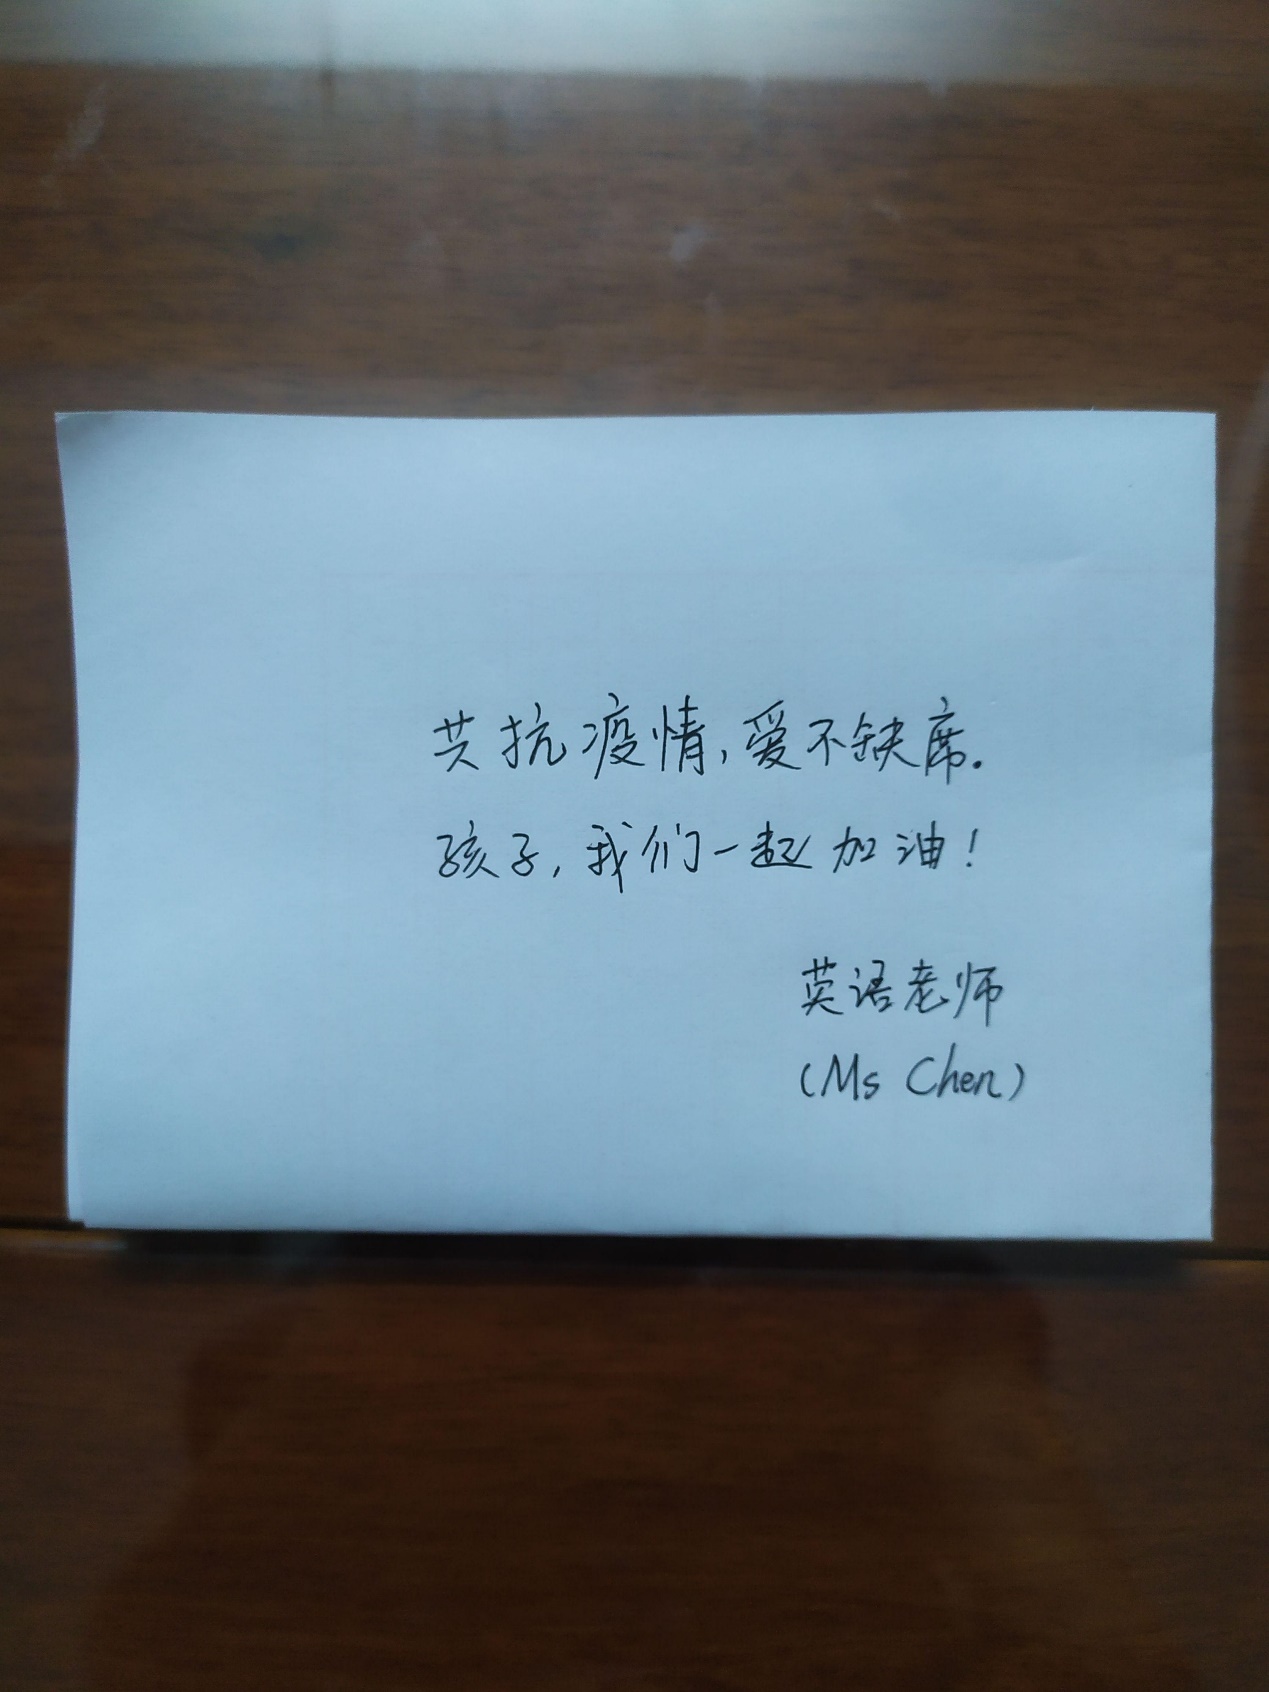 共抗疫情,爱不缺席.
孩子,我们一起加油!
英语老师
(Ms Chen)